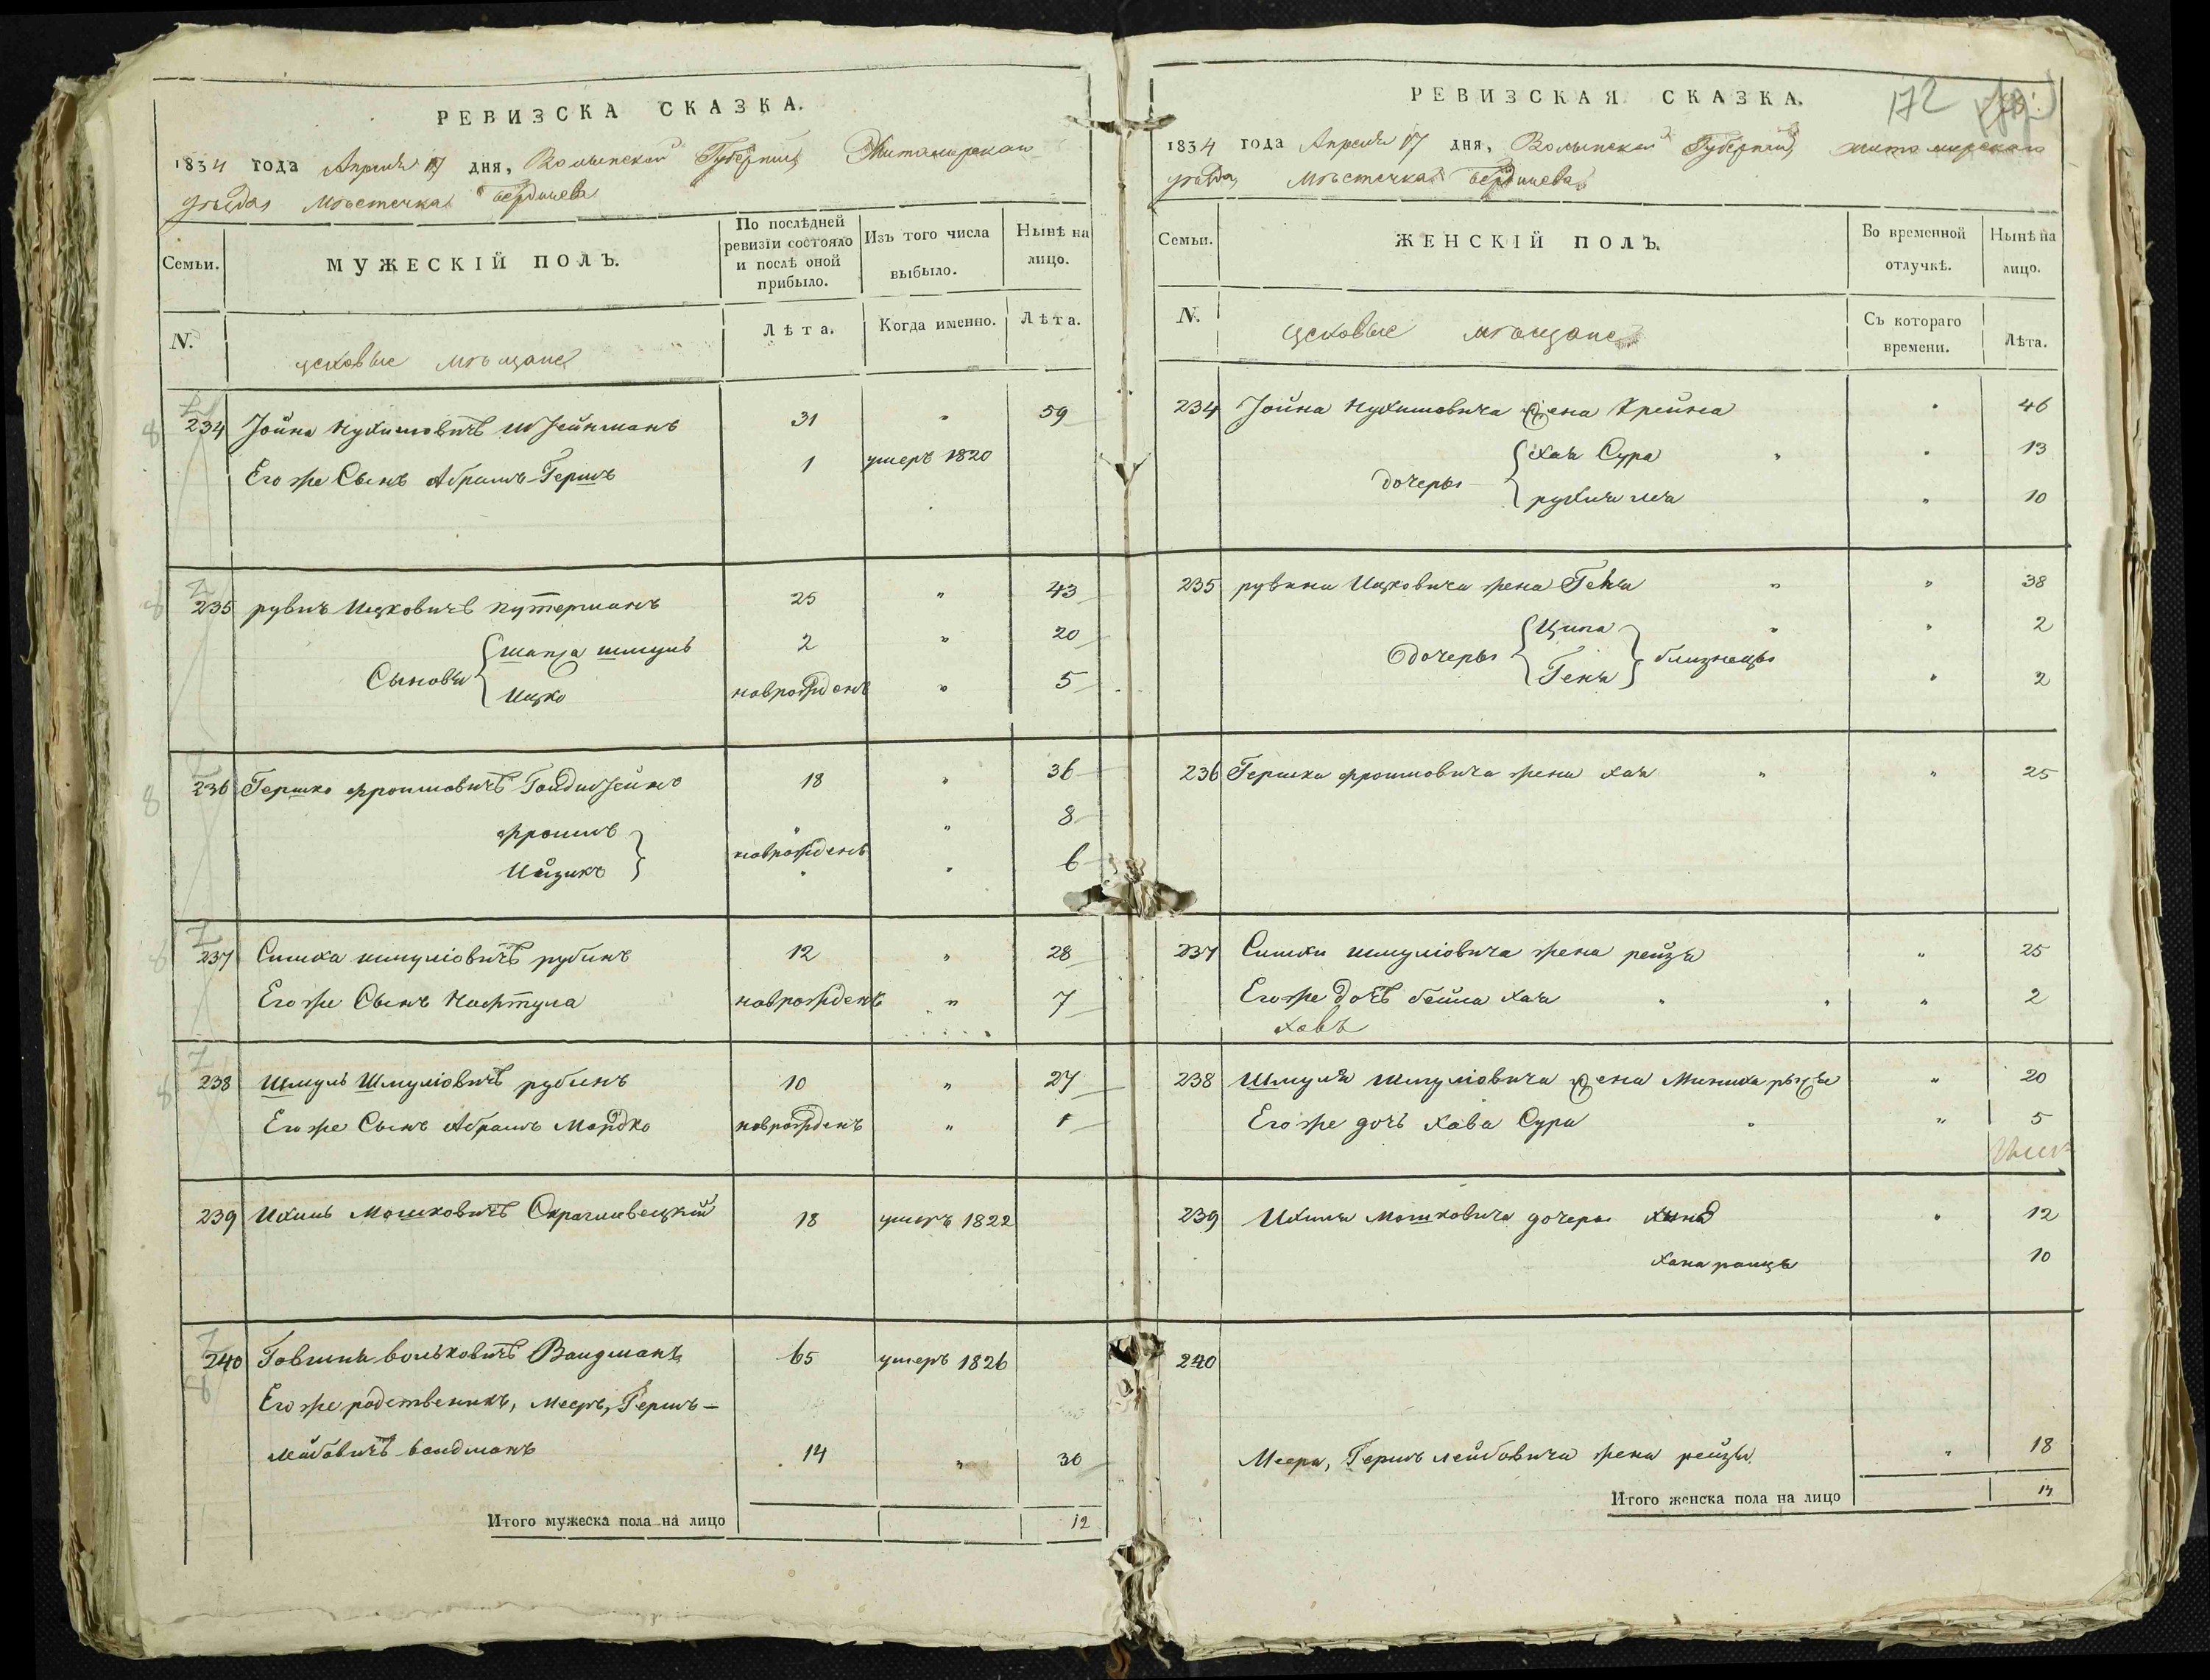 РЕВИЗСКА СКАЗКА.
1834 года Апреля 17 дня, Волынской Губернии, Житомирскаго
уезда местечка Бердичева
Семьи.
МУЖЕСКІЙ ПОЛЪ.
По послѣдней ревизіи состояло и послѣ оной прибыло.
Изъ того числа выбыло.
Нынѣ на лицо.
N.
Лѣта.
Когда именно.
Лѣта.
цеховые мѣщане
234 Іойна Нухимовичъ Штейнманъ 31 " 59
Его же Сынъ Абрамъ-Гершъ 1 умеръ 1820
235 рувинъ Ицковичъ путерманъ 25 " 43
Сыновья
шапса шмуль 2 " 20
Ицко новрожденъ " 5
236 Гершко фроимовичъ 18 " 36
фроимъ " " 8
новрожденъ
Ицикъ " " 6
237 Симха шмуліовичъ рубинъ 12 " 28
Его же Сынъ Нафтула новрожденъ " 7
238 Шмуль Шмуліовичъ рубинъ 10 " 27
Его же Сынъ Абрамъ Мордко новрожденъ " 1
239 Ихиль Мошковичъ 18 умеръ 1822
240 вольковичъ Вандманъ 65 умеръ 1826
Его же родственикъ, Мееръ, Гершъ-
лейбовичъ вандманъ 14 " 30
Итого мужеска пола на лицо 12
РЕВИЗСКАЯ СКАЗКА.
172
1834 года Апреля 17 дня, Волынской Губернии, житомирскаго
уезда, местечка Бердичева
Семьи.
ЖЕНСКІЙ ПОЛЪ.
Во временной отлучкѣ.
Нынѣ на лицо.
N.
Съ котораго времени.
Лѣта.
цеховые мѣщане
234 Іойна Нухимовича жена Крейна " 46
дочеры
хая Сура " " 13
рухля лея " 10
235 рувина Ицковича жена Геня " " 38
дочеры
Ципа " " 2
близнецы
Геня " 2
236 Гершка фроимовича жена хая " " 25
237 Симхи шмуліовича жена рейзя " 25
Его же дочъ бейла хая " " " 2
238 Шмуля шмуліовича жена " 20
Его же дочь хава Сура " " 5
239 Ихиля Мошковича дочеры " 12
хана 10
240
Меера, Гершъ лейбовича жена рейзя " 18
Итого женска пола на лицо 14